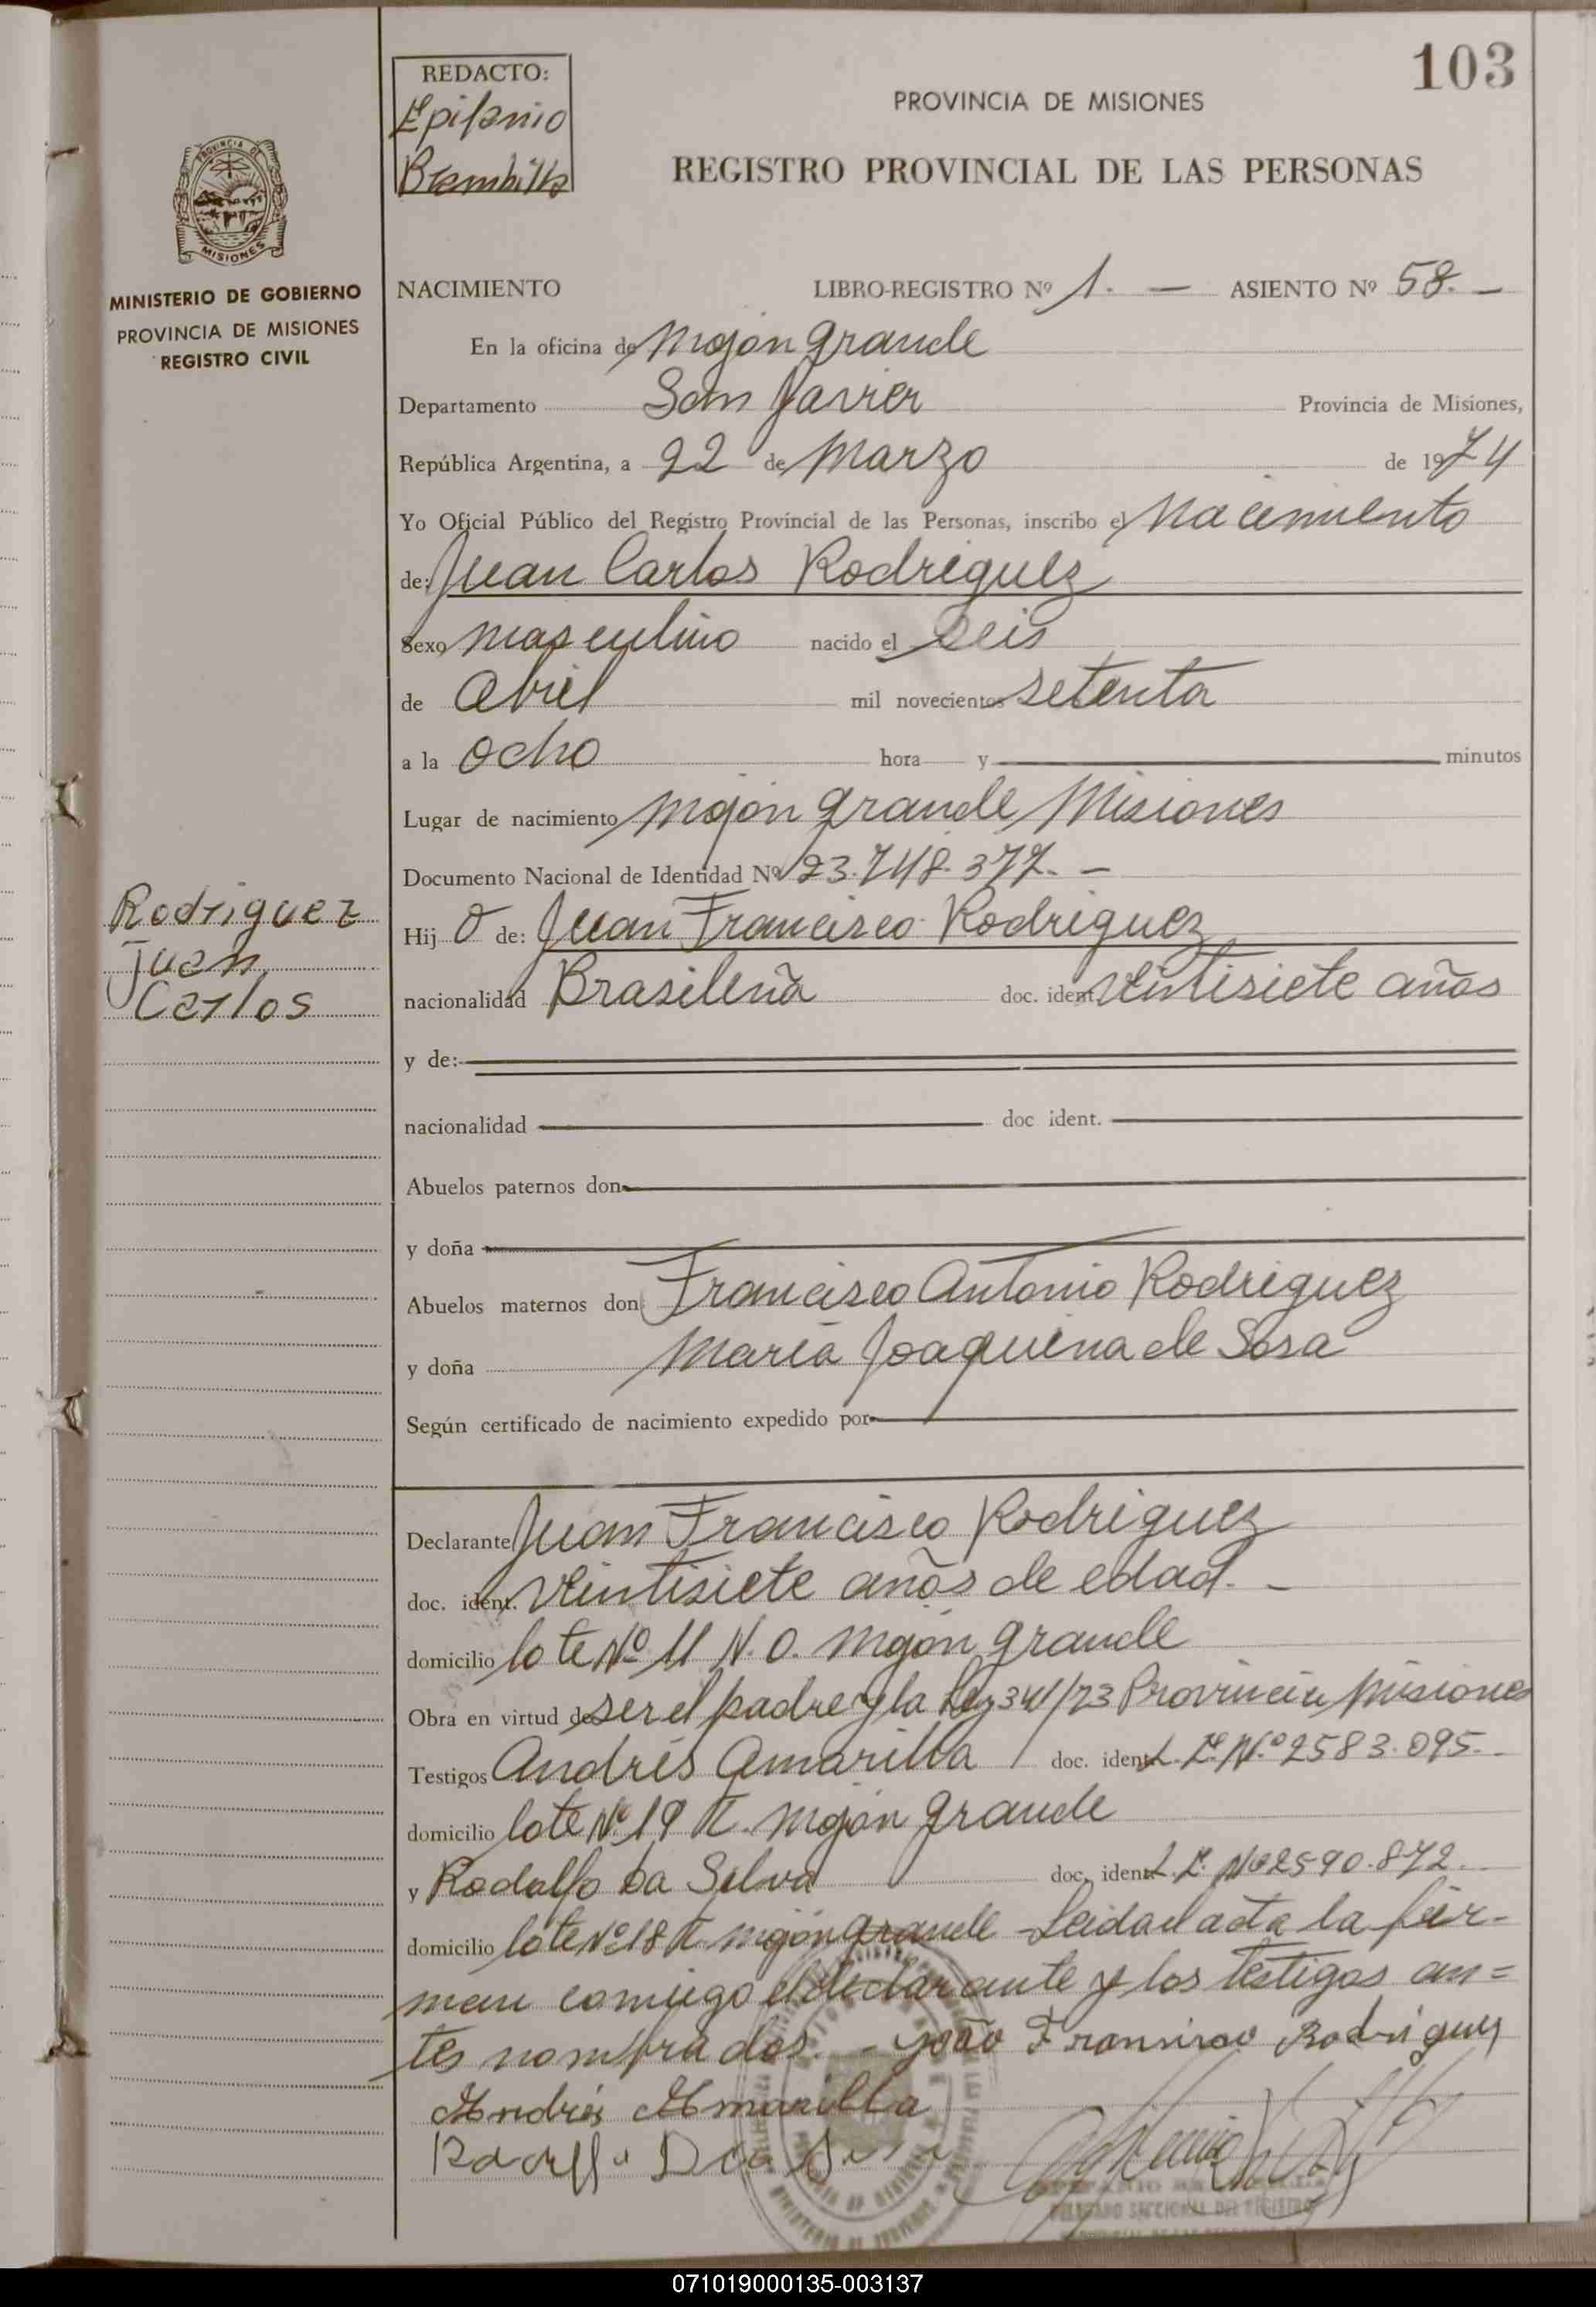 103
REDACTO:
Epifanio
Brambilla
PROVINCIA DE MISIONES
REGISTRO PROVINCIAL DE LAS PERSONAS
PROVINCIA DE
MISIONES
MINISTERIO DE GOBIERNO
PROVINCIA DE MISIONES
REGISTRO CIVIL
NACIMIENTO LIBRO-REGISTRO Nº 1. — ASIENTO Nº 58. —
En la oficina de Mojón grande
Departamento San Javier Provincia de Misiones,
República Argentina, a 22 de Marzo de 1974
Yo Oficial Público del Registro Provincial de las Personas, inscribo el Nacimiento
de: Juan Carlos Rodriguez
Sexo masculino nacido el Seis
de Abril mil novecientos setenta
a la ocho hora y minutos
Lugar de nacimiento Mojón grande Misiones
Documento Nacional de Identidad Nº 23.748.377. —
Rodriguez
Juan
Carlos
Hijo de: Juan Francisco Rodriguez
nacionalidad Brasileña doc. ident. veintisiete años
y de:
nacionalidad doc ident.
Abuelos paternos don
y doña
Abuelos maternos don: Francisco Antonio Rodriguez
y doña Maria Joaquina de Sosa
Según certificado de nacimiento expedido por
Declarante Juan Francisco Rodriguez
doc. ident. veintisiete años de edad. —
domicilio lote Nº 11 N.O. Mojón grande
Obra en virtud de ser el padre y la Ley 341/73 Provincia Misiones
Testigos Andrés Amarilla doc. ident. L.E. Nº 2583.095. -
domicilio lote Nº 19 Mojón grande
y Rodolfo Da Silva doc. ident. L.E. Nº 2590.872.
domicilio lote Nº 18 Mojón grande - Leida el acta la fir-
man conmigo el declarante y los testigos an=
tes nombrados. - João Francisco Rodrigues
Andrés Amarilla
DELEGADO SECCIONAL DEL REGISTRO
071019000135-003137